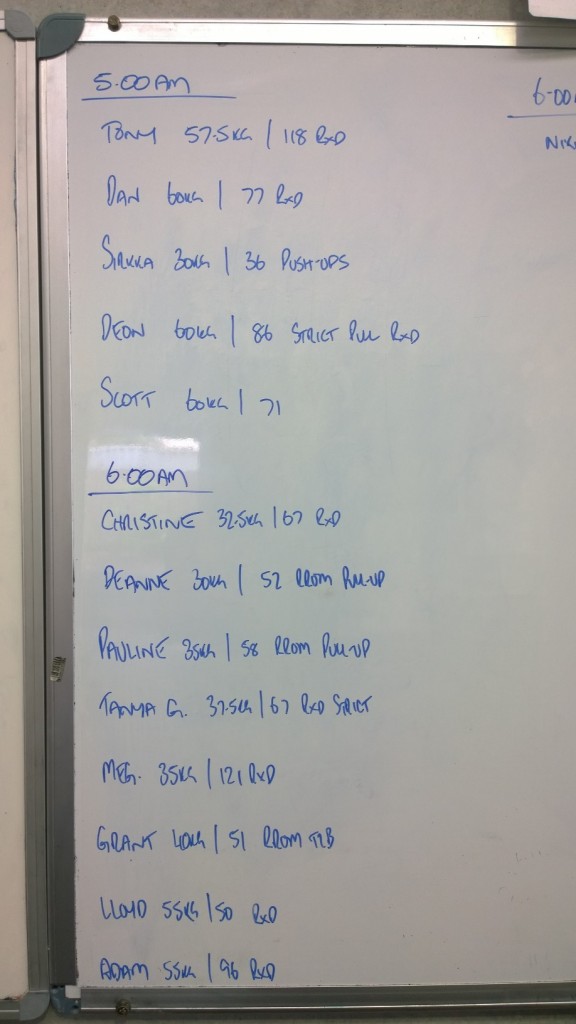 5.00AM
TONY 57.5KG | 118 RXD
DAN 60KG | 77 RXD
SIRKKA 30KG | 36 PUSH-UPS
DEON 60KG | 86 STRICT PULL RXD
SCOTT 60KG | 71
6.00AM
CHRISTINE 32.5KG | 67 RXD
DEANNE 30KG | 52 RROM PULL-UP
PAULINE 35KG | 58 RROM PULL-UP
TANYA G. 37.5KG | 67 RXD STRICT
MEG. 35KG | 121 RXD
GRANT 40KG | 51 RROM T2B
LLOYD 55KG | 50 RXD
ADAM 55KG | 96 RXD
6-00